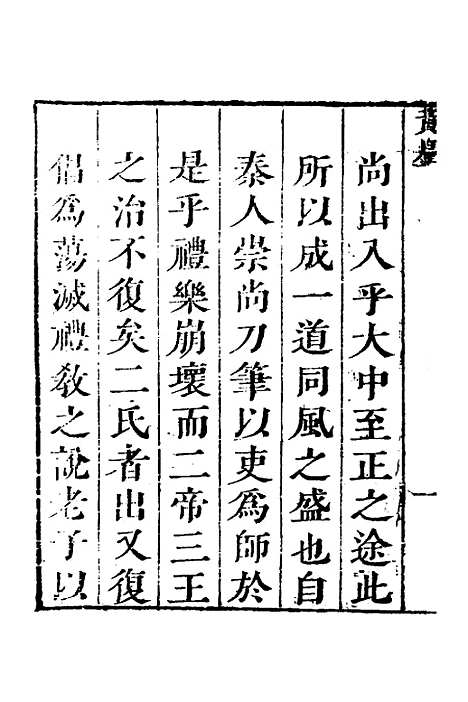 尚出入乎大中至正之途此
所以成一道同風之盛也自
秦人崇尚刀筆以吏爲師於
是乎禮樂崩壞而二帝三王
之治不復矣二氏者出又復
倡爲蕩滅禮敎之說老子以
一